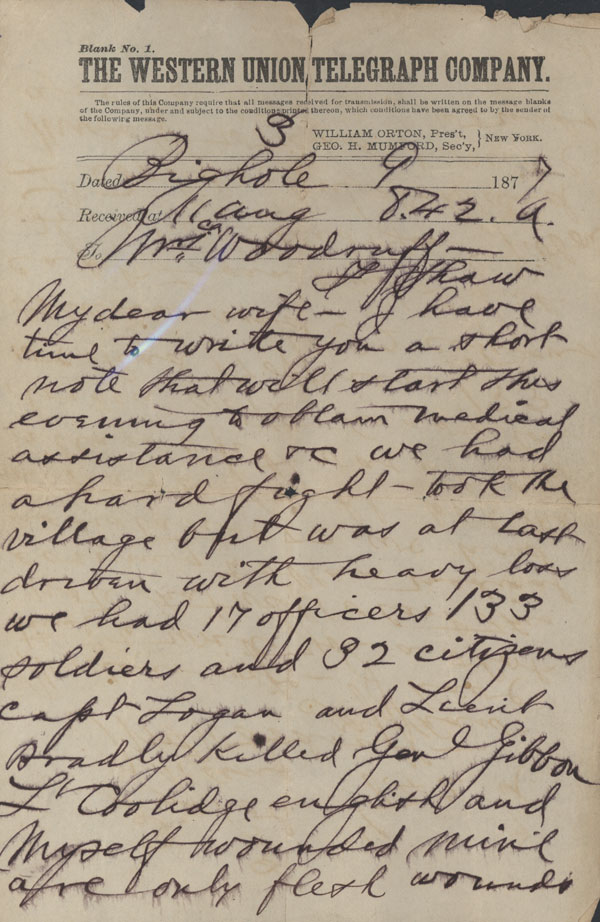 Blank No. 1.
THE WESTERN UNION TELEGRAPH COMPANY.
The rules of this Company require that all messages received for transmission, shall be written on the message blanks
of the Company, under and subject to the conditions printed thereon, which conditions have been agreed to by the sender of
the following message.
3
WILLIAM ORTON, Pres't,
GEO. H. MUMFORD, Sec'y, } NEW YORK.
Dated Bighole 9 1877
Received at 11 aug 8.42. a.
To Mrs Woodruff—
Ft Shaw
My dear wife— I have
time to write you a short
note that will start this
evening to obtain medical
assistance &c we had
a hard fight— took the
village but was at last
driven with heavy loss
we had 17 officers 133
soldiers and 32 citizens
capt Logan and Lieut
Bradly killed Genl Gibbon
Lt Coolidge english and
Myself wounded mine
are only flesh wounds